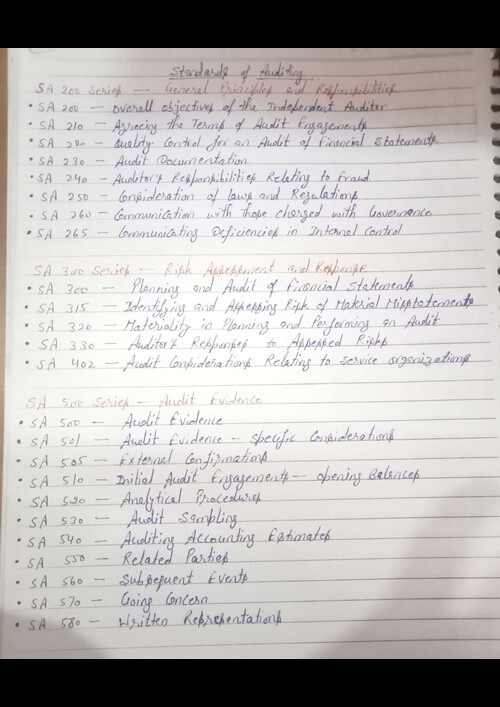 Standards of Auditing
SA 200 Series — General Principles and Responsibilities
• SA 200 — Overall objectives of the Independent Auditor
• SA 210 — Agreeing the Terms of Audit Engagements
• SA 220 — Quality Control for an Audit of Financial Statements
• SA 230 — Audit Documentation
• SA 240 — Auditor's Responsibilities Relating to Fraud
• SA 250 — Consideration of Laws and Regulations
• SA 260 — Communication with those charged with Governance
• SA 265 — Communicating Deficiencies in Internal Control
SA 300 Series — Risk Assessment and Response
• SA 300 — Planning and Audit of Financial Statements
• SA 315 — Identifying and Assessing Risk of Material Misstatements
• SA 320 — Materiality in Planning and Performing an Audit
• SA 330 — Auditor's Responses to Assessed Risks
• SA 402 — Audit Considerations Relating to service organizations
SA 500 Series — Audit Evidence
• SA 500 — Audit Evidence
• SA 501 — Audit Evidence - Specific Considerations
• SA 505 — External Confirmations
• SA 510 — Initial Audit Engagements — opening Balances
• SA 520 — Analytical Procedures
• SA 530 — Audit Sampling
• SA 540 — Auditing Accounting Estimates
• SA 550 — Related Parties
• SA 560 — Subsequent Events
• SA 570 — Going Concern
• SA 580 — Written Representations